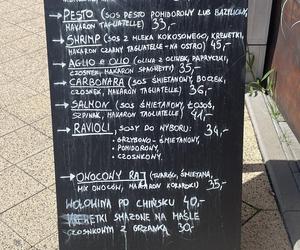 → PESTO (SOS PESTO POMIDOROWY LUB BAZYLIOWY,
MAKARON TAGLIATELLE) 33,-
→ SHRIMP (SOS Z MLEKA KOKOSOWEGO, KREWETKI,
MAKARON CZARNY TAGLIATELLE - NA OSTRO) 45,-
→ AGLIO E OLIO (OLIWA Z OLIWEK, PAPRYCZKI,
CZOSNEK, MAKARON SPAGHETTI) 35,-
→ CARBONARA (SOS ŚMIETANOWY, BOCZEK,
CZOSNEK, MAKARON TAGLIATELLE) 36,-
→ SALMON (SOS ŚMIETANOWY, ŁOSOŚ,
SZPINAK, MAKARON TAGLIATELLE) 41,-
→ RAVIOLI. SOSY DO WYBORU: 34,-
- GRZYBOWO - ŚMIETANOWY,
- POMIDOROWY,
- CZOSNKOWY.
→ OWOCOWY RAJ (TWARÓG, ŚMIETANA,
MIX OWOCÓW, MAKARON KOKARDKI) 35,-
WOŁOWINA PO CHIŃSKU 40,-
KREWETKI SMAŻONE NA MAŚLE
CZOSNKOWYM Z GRZANKĄ 30,-